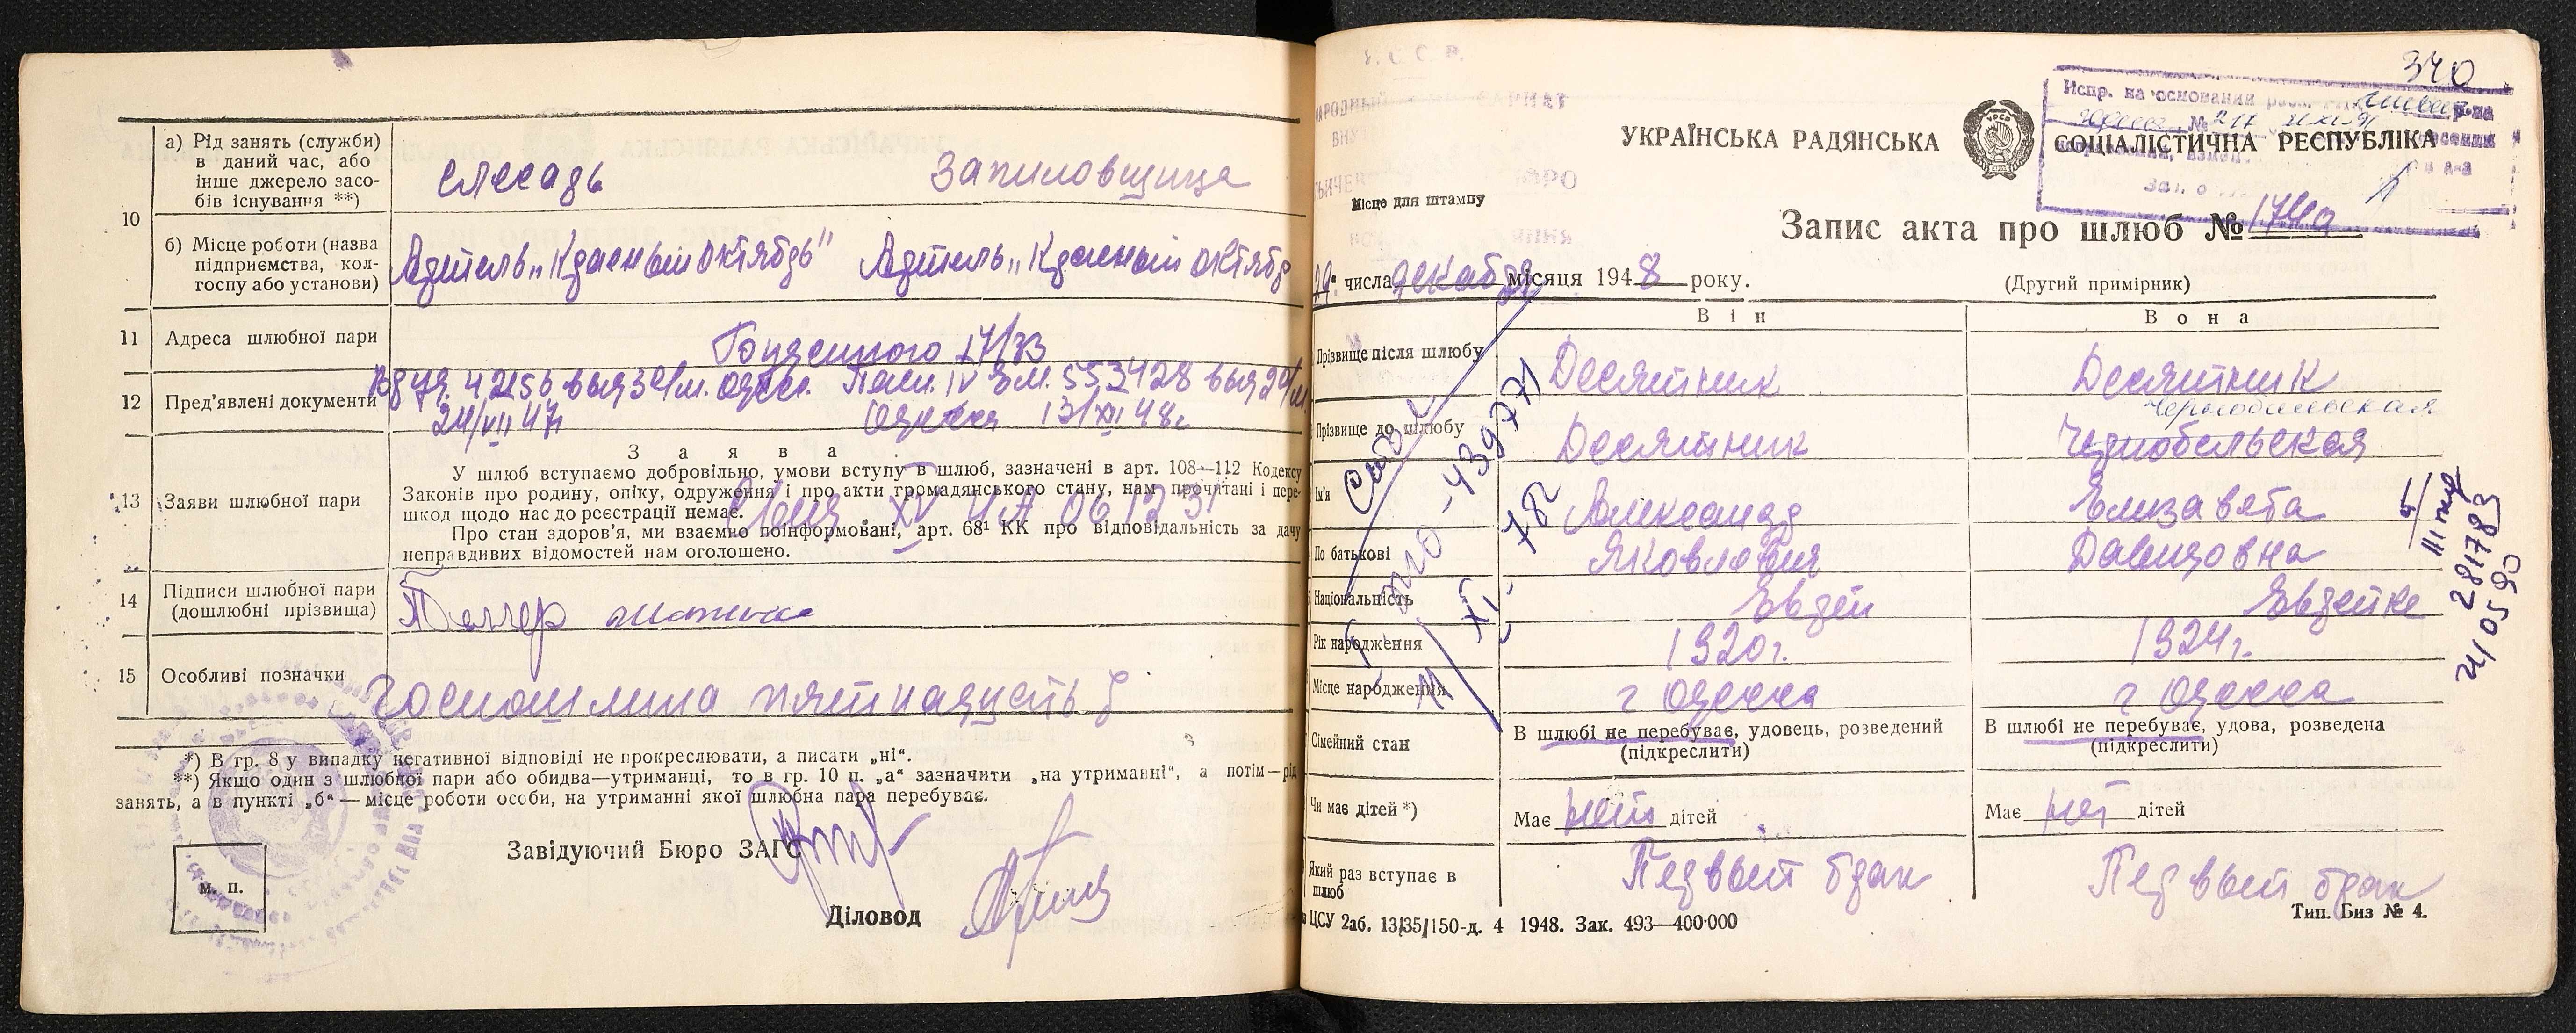 10
а) Рід занять (служби)
в даний час, або
інше джерело засо-
бів існування **)
слесарь
Запиловщица
б) Місце роботи (назва
підприємства, кол-
госпу або установи)
Артель „Красный октябрь"
Артель „Красный октябр
11
Адреса шлюбної пари
17/33
12
Пред'явлені документи
24/VII 47
Одесса 13/XI 48г
13
Заяви шлюбної пари
З а я в а
У шлюб вступаємо добровільно, умови вступу в шлюб, зазначені в арт. 108—112 Кодексу
Законів про родину, опіку, одруження і про акти громадянського стану, нам прочитані і пере-
шкод щодо нас до реєстрації немає.
Про стан здоров'я, ми взаємно поінформовані, арт. 68¹ КК про відповідальність за дачу
неправдивих відомостей нам оголошено.
14
Підписи шлюбної пари
(дошлюбні прізвища)
15
Особливі позначки
Госпошлина пятнадцать р
*) В гр. 8 у випадку негативної відповіді не прокреслювати, а писати „ні“.
**) Якщо один з шлюбної пари або обидва—утриманці, то в гр. 10 п. „а“ зазначити „на утриманні“, а потім—рід
занять, а в пункті „б“—місце роботи особи, на утриманні якої шлюбна пара перебуває.
Завідуючий Бюро ЗАГС
м. п.
Діловод
340
Испр. на основании
№ 217
УКРАЇНСЬКА РАДЯНСЬКА
СОЦІАЛІСТИЧНА РЕСПУБЛІКА
Місце для штампу
Запис акта про шлюб № 1744а
29 числа декабря місяця 1948 року.
(Другий примірник)
В і н
В о н а
Прізвище після шлюбу
Десятник
Десятник
Чернобыльская
Прізвище до шлюбу
Десятник
Чернобельская
Ім'я
Александр
Елизавета
По батькові
Яковлевич
Давидовна
Національність
Еврей
Еврейка
Рік народження
1920г.
1924г.
Місце народження
г Одесса
г Одесса
Сімейний стан
В шлюбі не перебуває, удовець, розведений
(підкреслити)
В шлюбі не перебуває, удова, розведена
(підкреслити)
Чи має дітей *)
Має нет дітей
Має нет дітей
Який раз вступає в
шлюб
Первый брак
Первый брак
ЦСУ 2аб. 13/35/150-д. 4 1948. Зак. 493—400·000
Тип. Биз № 4.
439771
281783
24/05 90